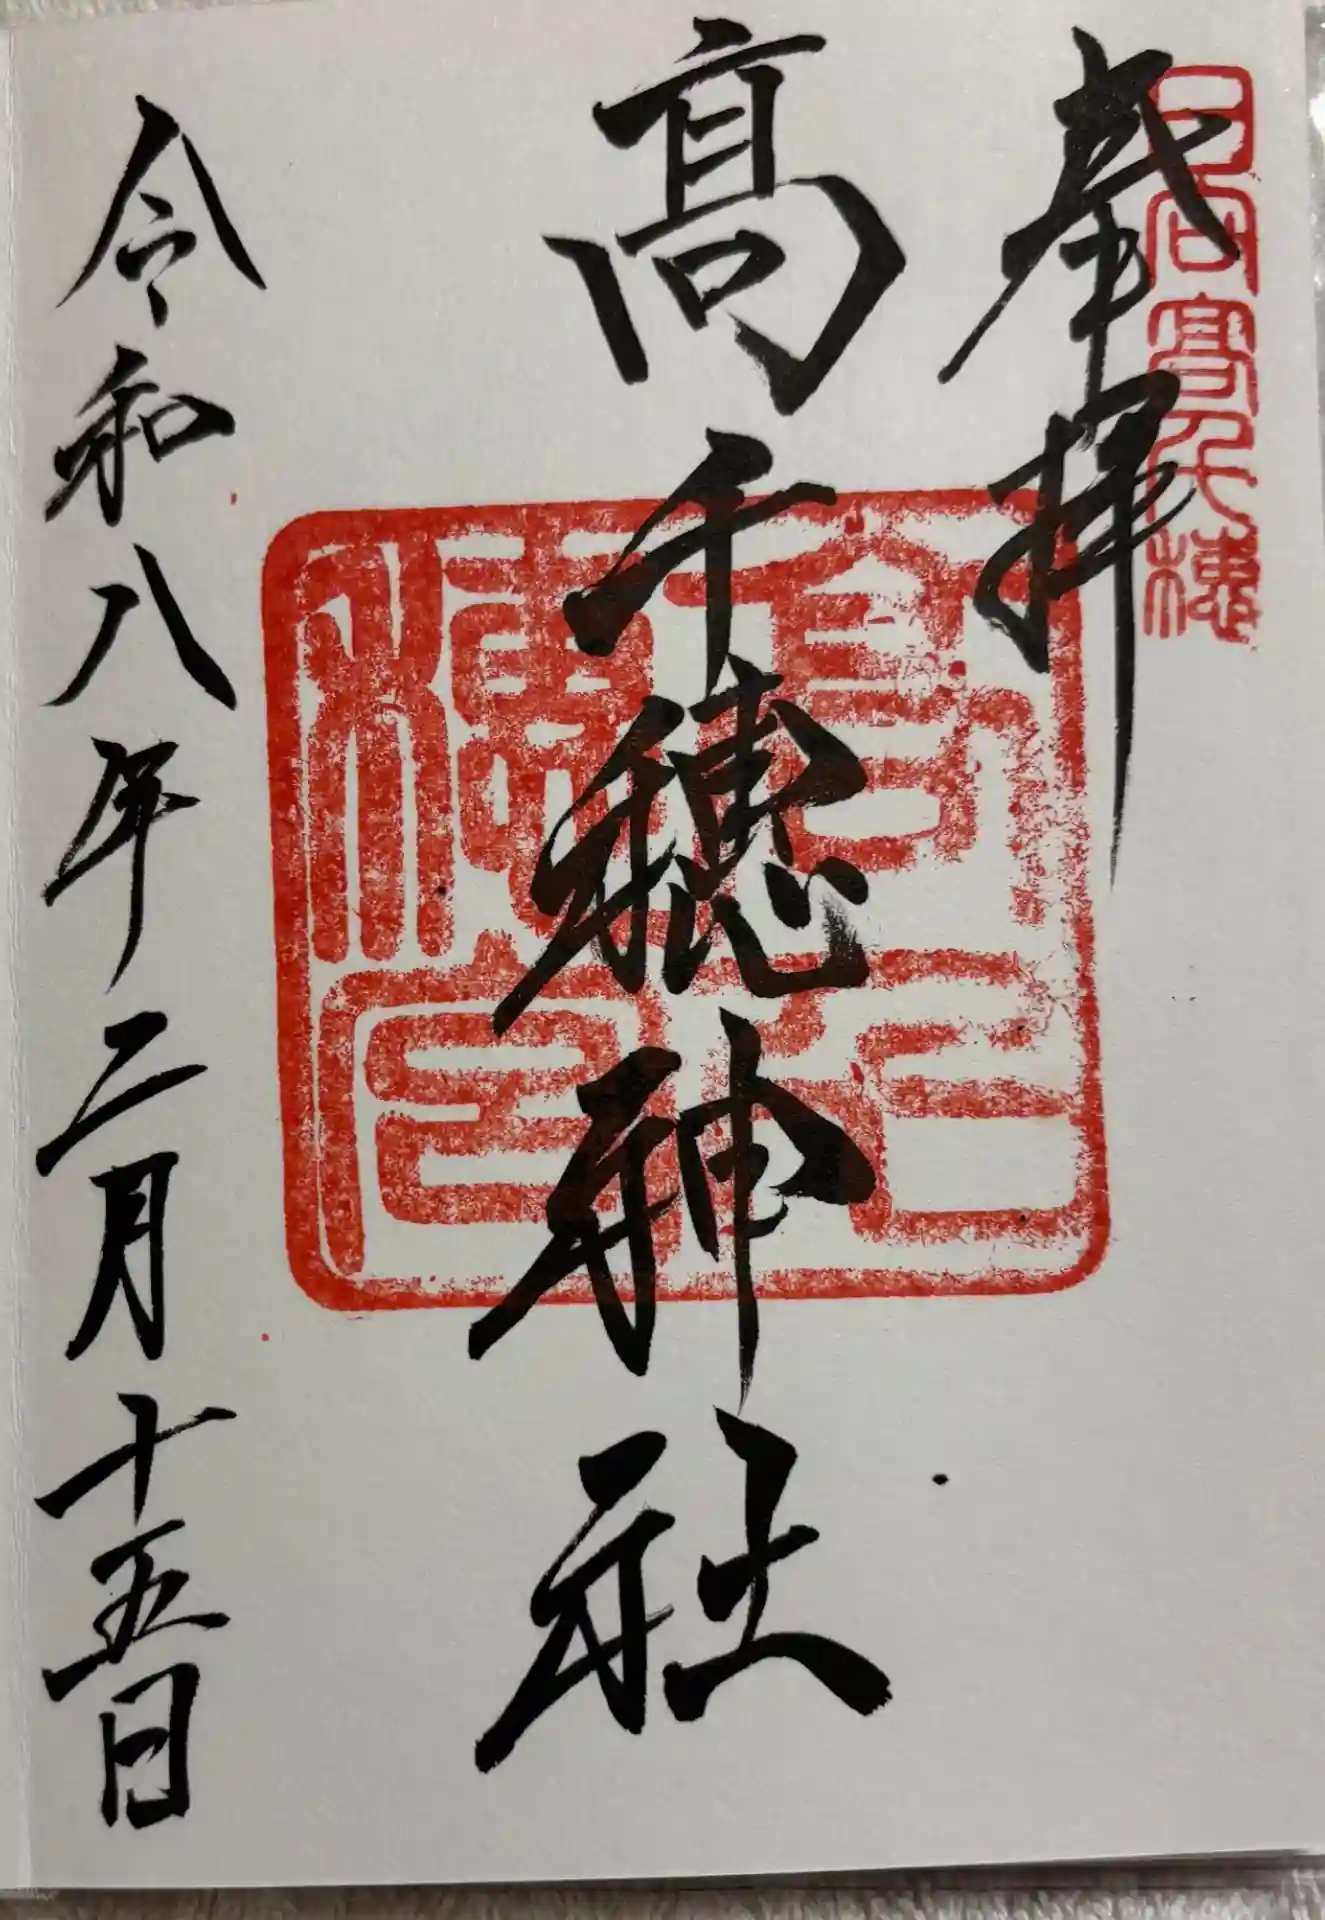 奉拝
日向高千穂
髙千穂神社
令和八年二月十五日